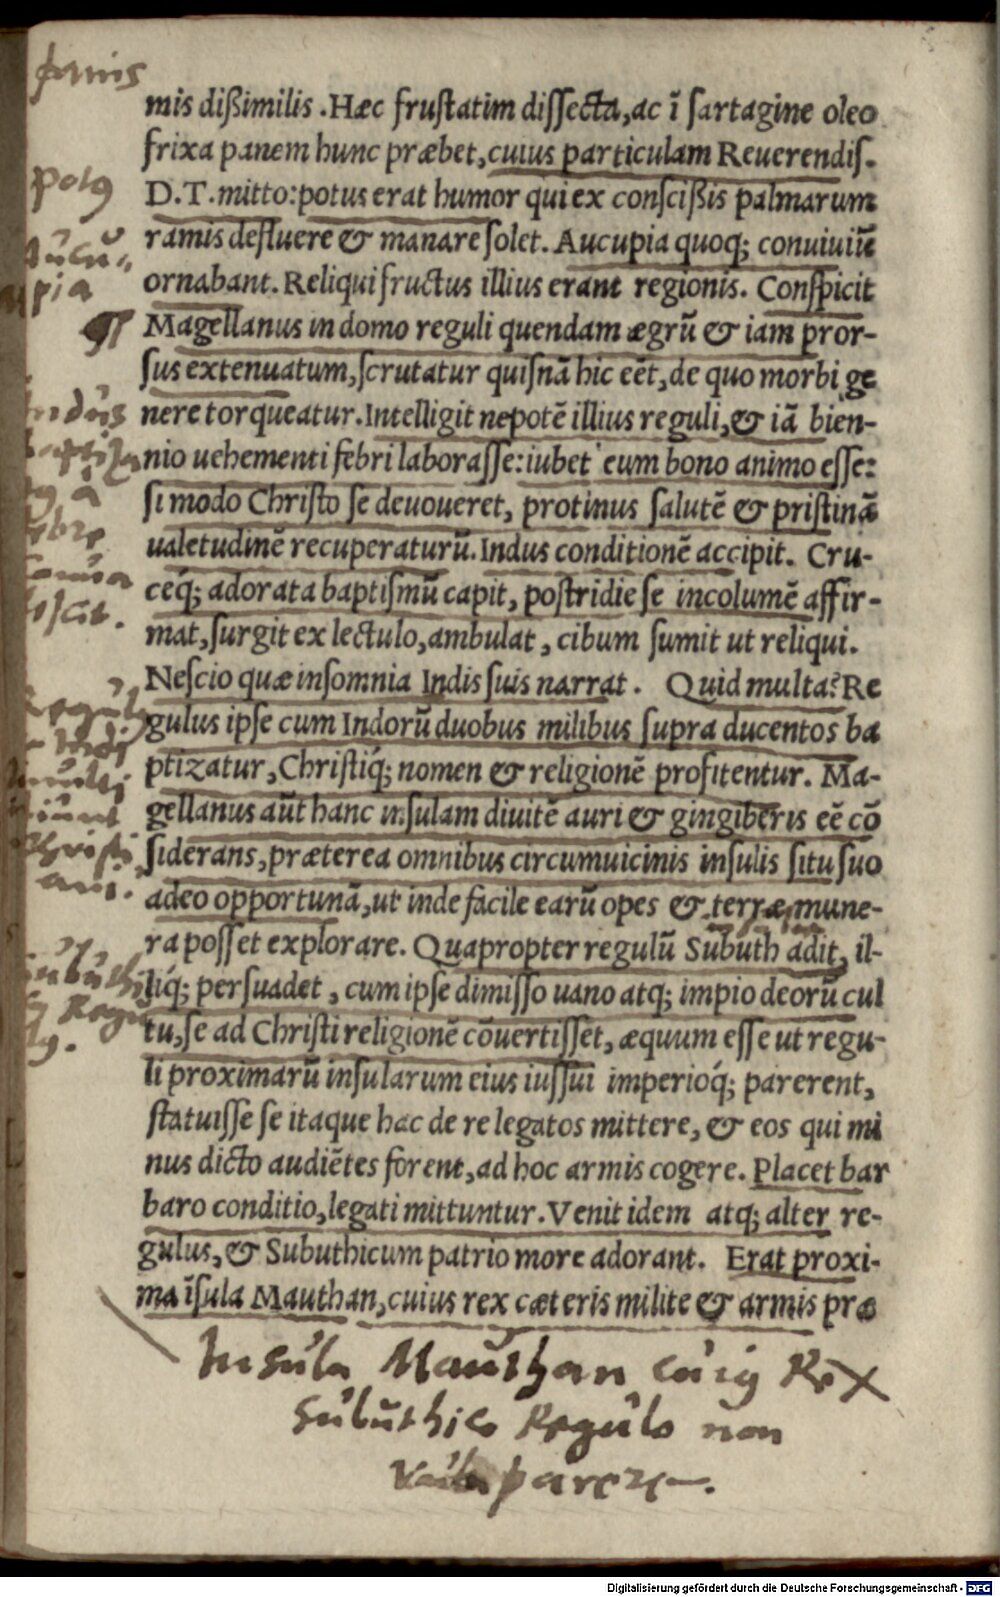 panis
mis dißimilis. Hæc frustatim dissecta, ac ī sartagine oleo
frixa panem hunc præbet, cuius particulam Reuerendis.
potꝰ
D.T. mitto: potus erat humor qui ex conscißis palmarum
ramis defluere & manare solet. Aucupia quoq; conuiuiū
Aucu-
pia
ornabant. Reliqui fructus illius erant regionis. Conspicit
Magellanus in domo reguli quendam ægrū & iam pror-
sus extenuatum, scrutatur quisnā hic eēt, de quo morbi ge
Indus
nere torqueatur. Intelligit nepotē illius reguli, & iā bien-
nio uehementi febri laborasse: iubet eum bono animo esse:
si modo Christo se deuoueret, protinus salutē & pristinā
febre
ualetudinē recuperaturū. Indus conditionē accipit. Cru-
céq; adorata baptismū capit, postridie se incolumē affir-
mat, surgit ex lectulo, ambulat, cibum sumit ut reliqui.
Nescio quæ insomnia Indis suis narrat. Quid multa? Re
gulus ipse cum Indorū duobus milibus supra ducentos ba
ptizatur, Christiq́; nomen & religionē profitentur. Ma-
multi
gellanus aūt hanc insulam diuitē auri & gingiberis eē cō
fiunt
siderans, præterea omnibus circumuicinis insulis situ suo
Christi
ani.
adeo opportunā, ut inde facile earū opes & terræ mune-
ra posset explorare. Quapropter regulū Subuth adit, il-
liq́; persuadet, cum ipse dimisso uano atq; impio deorū cul
tu, se ad Christi religionē cōuertisset, æquum esse ut regu-
li proximarū insularum eius iussui imperioq́; parerent,
statuisse se itaque hac de re legatos mittere, & eos qui mi
nus dicto audiētes forent, ad hoc armis cogere. Placet bar
baro conditio, legati mittuntur. Venit idem atq; alter re-
gulus, & Subuthicum patrio more adorant. Erat proxi-
ma īsula Mauthan, cuius rex cæteris milite & armis præ
Insula Mauthan cuiꝰ Rex
Subuthico Regulo non
vult parere.
Digitalisierung gefördert durch die Deutsche Forschungsgemeinschaft - DFG